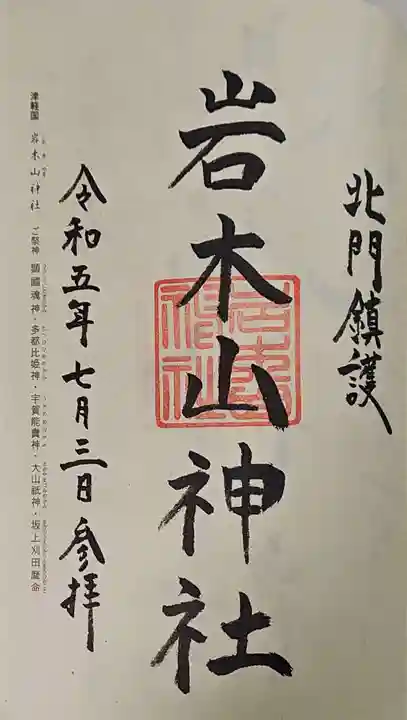 北門鎮護
岩木山神社
令和五年七月三日参拝
津軽国 岩木山神社 ご祭神 顕國魂神・多都比姫神・宇賀能賣神・大山祇神・坂上刈田麿命